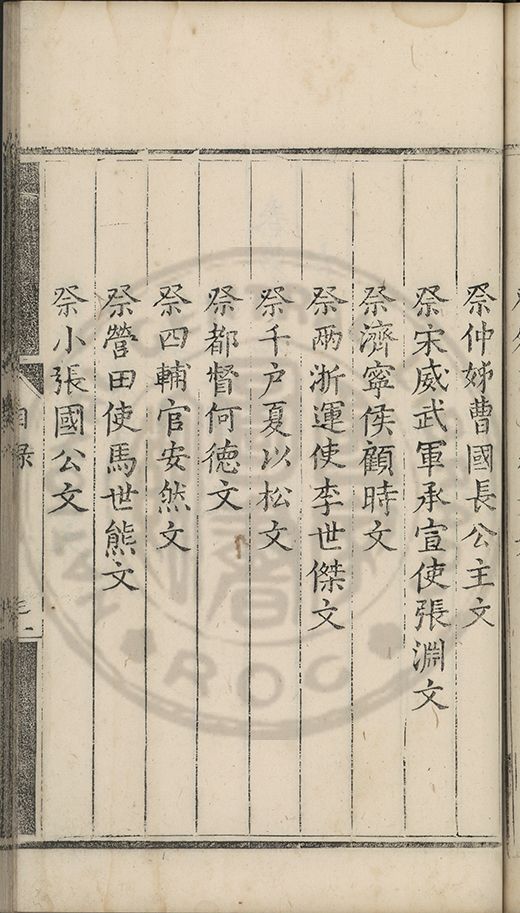 祭仲姊曹國長公主文
祭宋威武軍承宣使張淵文
祭濟寧侯顧時文
祭兩浙運使李世傑文
祭千户夏以松文
祭都督何德文
祭四輔官安然文
祭營田使馬世熊文
祭小張國公文
目録